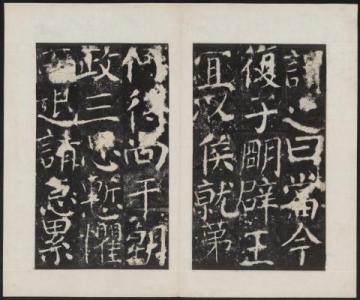 之曰當今
復子明辟王
宜以侯就第
何得尚干朝
政三思慙懼
退請急累